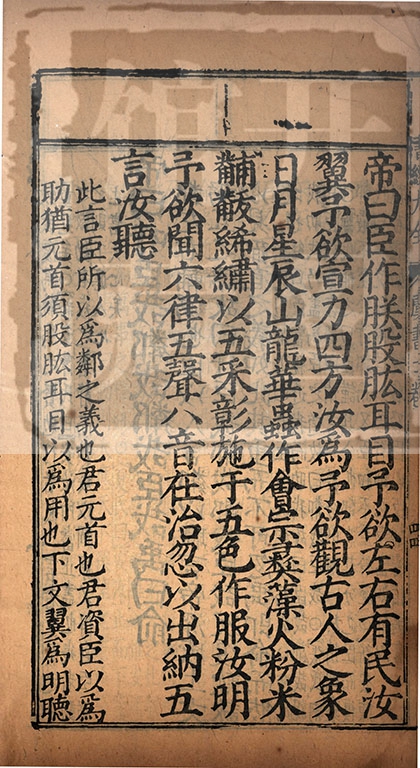 帝曰臣作朕股肱耳目予欲左右有民汝
翼予欲宣力四方汝為予欲觀古人之象
日月星辰山龍華蟲作會宗彝藻火粉米
黼黻絺繡以五采彰施于五色作服汝明
予欲聞六律五聲八音在治忽以出納五
言汝聽
此言臣所以為鄰之義也君元首也君資臣以為
助猶元首須股肱耳目以為用也下文翼為明聽